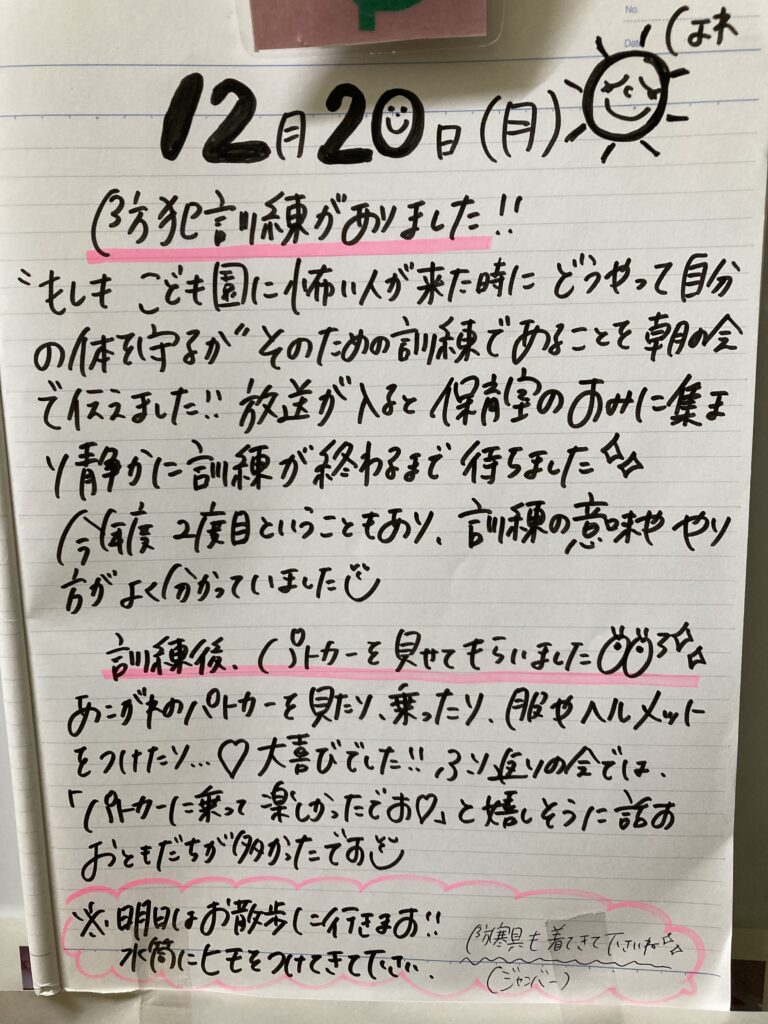 No.
Date
12月20日(月)
防犯訓練がありました!!
"もしも こども園に怖い人が来た時に どうやって自分
の体を守るか" そのための訓練であることを朝の会
で伝えました!! 放送が入ると 保育室のおみに集ま
り静かに訓練が終わるまで 待ちました
今年度 2度目ということもあり、訓練の意味や やり
方がよく分かっていました
訓練後、パトカーを見せてもらいました
あこがれのパトカーを見たり、乗ったり、服やヘルメット
をつけたり…♡ 大喜びでした!! ふり返りの会では、
「パトカーに乗って 楽しかったです♡」と嬉しそうに話す
おともだちが多かったです
※ 明日はお散歩に行きます!!
水筒にヒモをつけてきて下さい.
防寒具も着てきて下さいね
(ジャンバー)